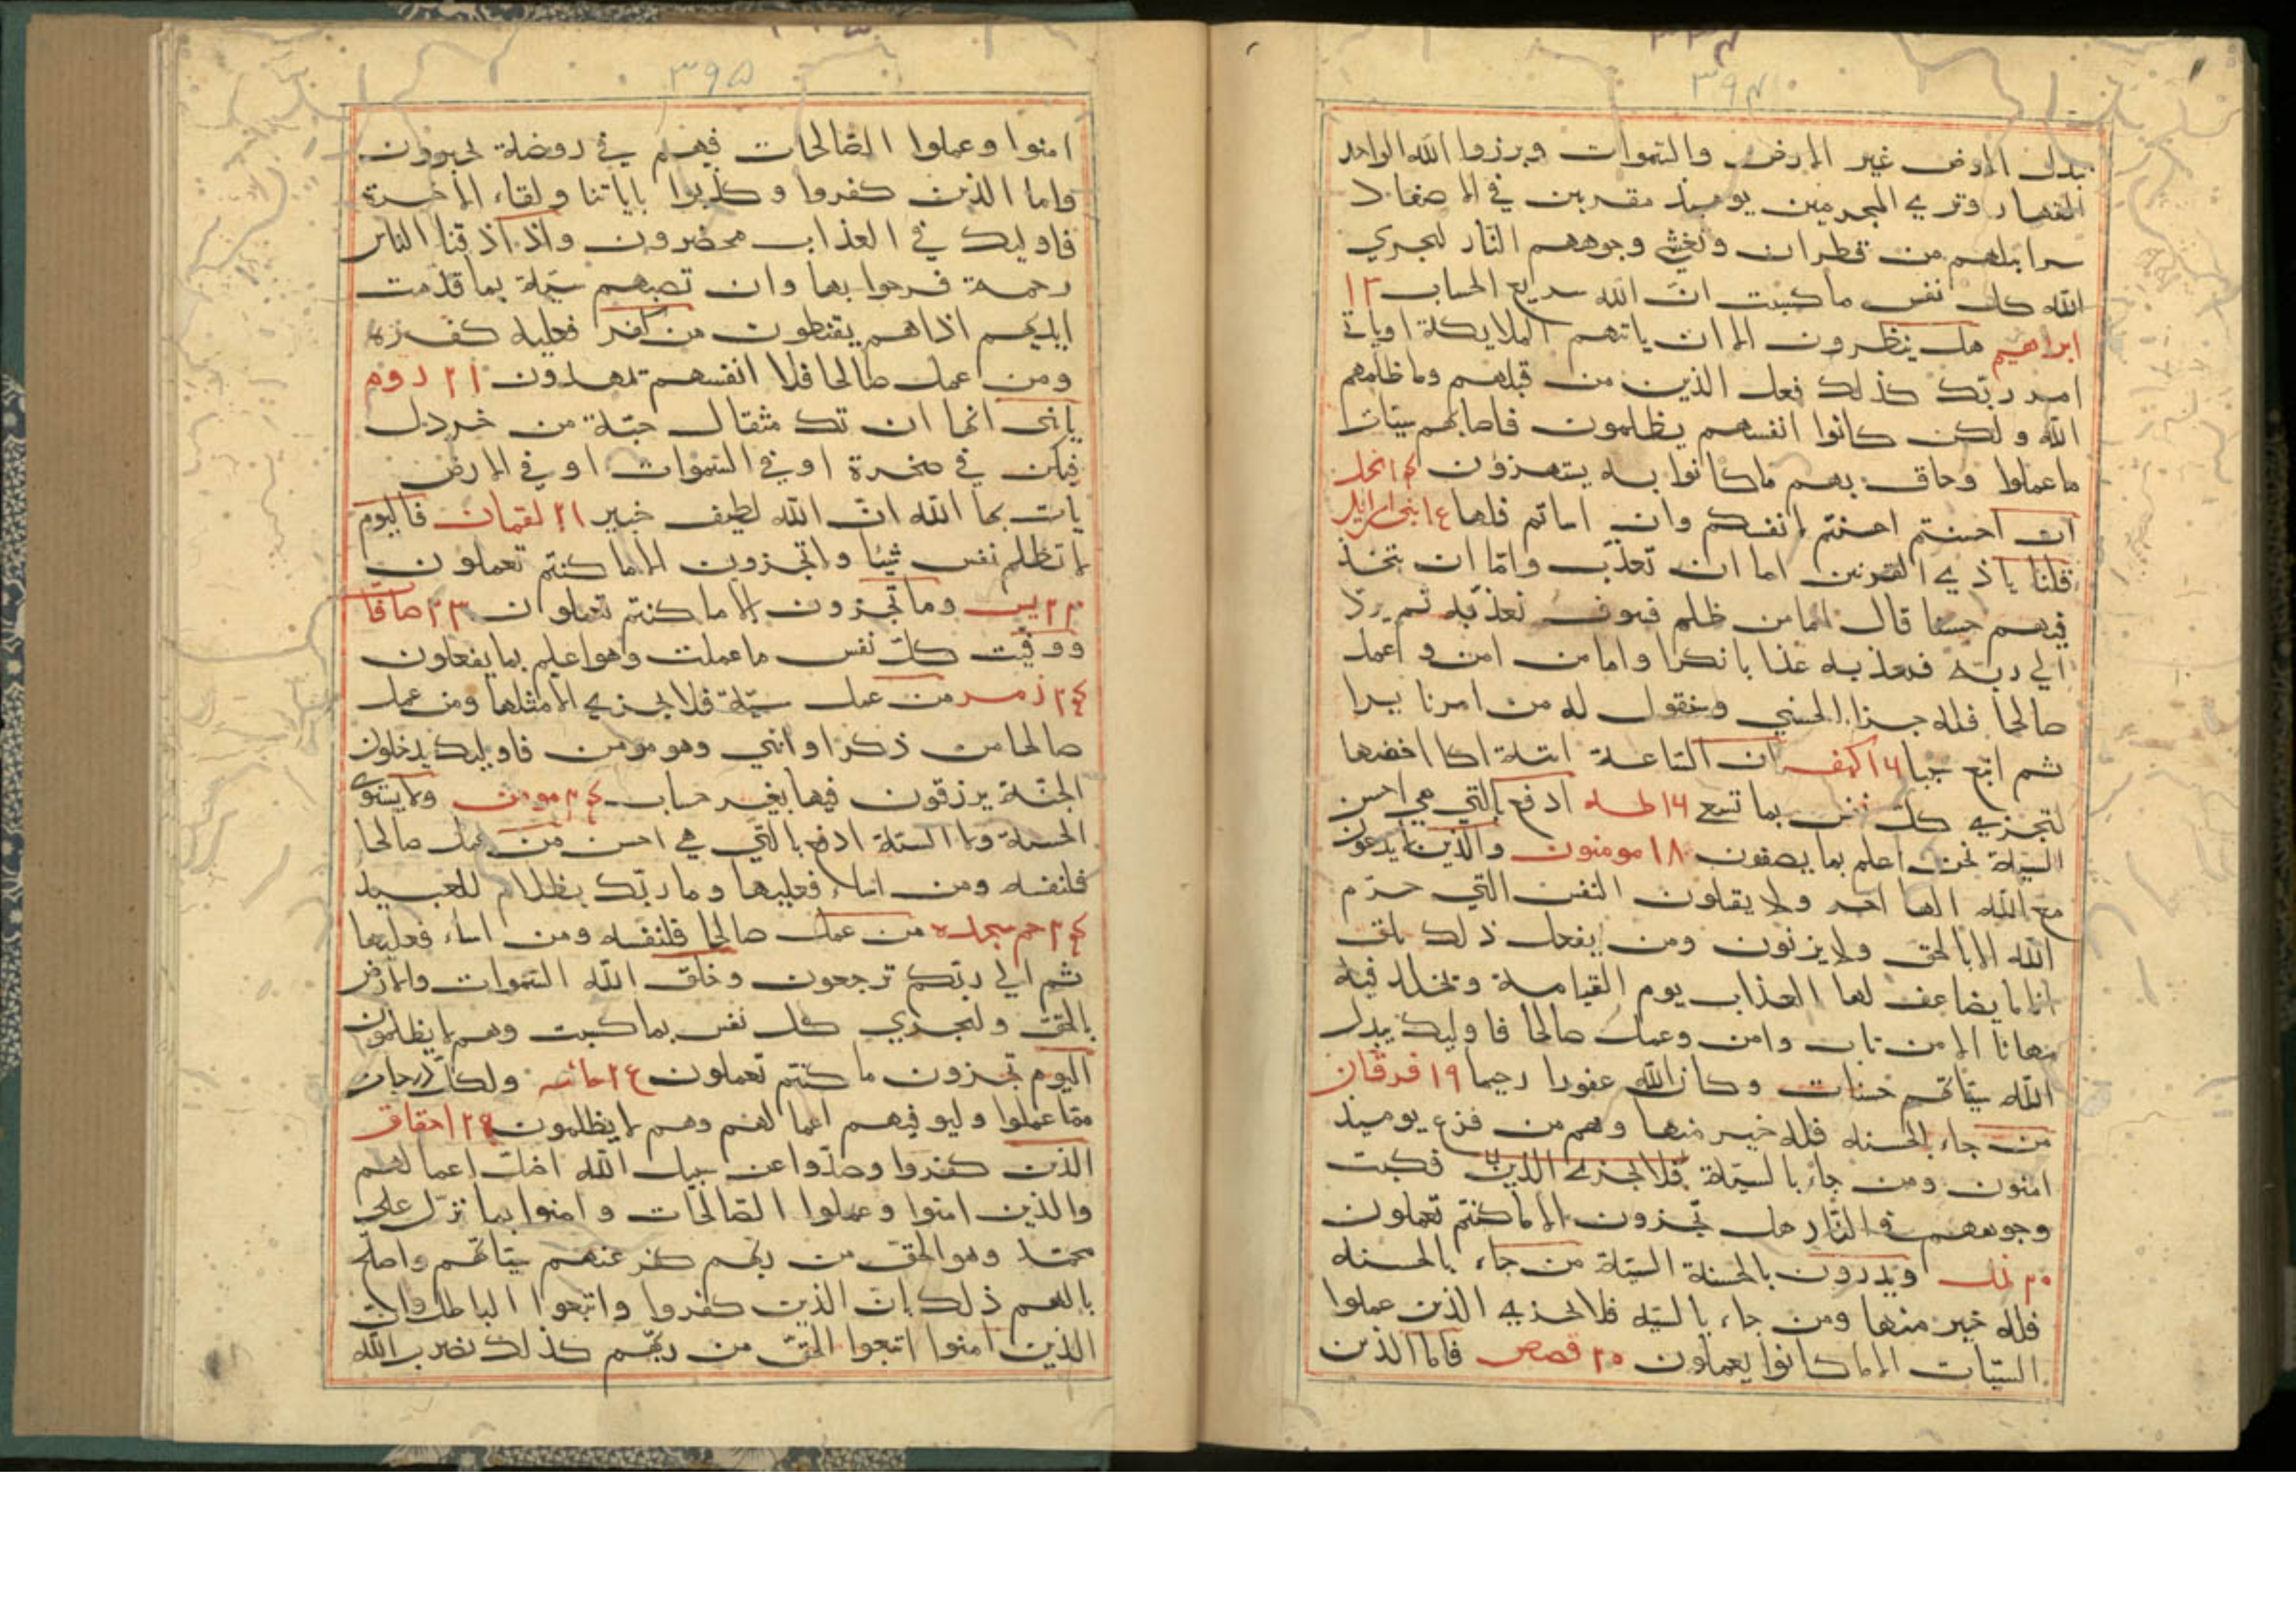 ٣٩٤
تبدل الارض غير الارض والسموات وبرزوا الله الواحد
القهار وتري المجرمين يوميذ مقرنين في الاصفاد
سرابيلهم من قطران وتغشي وجوههم النار ليجزي
الله كل نفس ما كسبت ان الله سريع الحساب ١٣
ابراهيم هل ينظرون الا ان ياتيهم الملايكة او ياتي
امر ربك كذلك فعل الذين من قبلهم وما ظلمهم
الله ولكن كانوا انفسهم يظلمون فاصابهم سيئات
ما عملوا وحاق بهم ما كانوا به يستهزؤن ١٤ نحل
ان احسنتم احسنتم لانفسكم وان اساتم فلها
قلنا ياذي القرنين اما ان تعذب واما ان تتخذ
فيهم حسنا قال اما من ظلم فسوف نعذبه ثم يردّ
الي ربه فيعذبه عذابا نكرا واما من امن وعمل
صالحا فله جزا الحسني وسنقول له من امرنا يسرا
ثم اتبع سببا ١٦ كهف ان الساعة اتية اكاد اخفيها
لتجزي كل نفس بما تسعي ١٦ طه ادفع بالتي هي احسن
السيئة نحن اعلم بما يصفون ١٨ مومنون والذين لا يدعون
مع الله الها اخر ولا يقتلون النفس التي حرّم
الله الا بالحق ولا يزنون ومن يفعل ذلك يلق
اثاما يضاعف لها العذاب يوم القيامة ويخلد فيه
مهانا الا من تاب وامن وعمل صالحا فاوليك يبدل
الله سيئاتهم حسنات وكان الله غفورا رحيما ١٩ فرقان
من جاء بالحسنه فله خير منها وهم من فزع يوميذ
امنون ومن جاء بالسيئة فكبت
وجوههم في النار هل تجزون الا ما كنتم تعملون
٢٠ نمل ويدرون بالحسنة السيئة من جاء بالحسنه
فله خير منها ومن جاء بالسيئه فلا يجزي الذين عملوا
السيئات الا ما كانوا يعملون ٢٠ قصص فاما الذين
٣٩٥
امنوا وعملوا الصالحات فهم في روضة يحبرون
واما الذين كفروا وكذبوا باياتنا ولقاء الاخرة
فاوليك في العذاب محضرون واذا اذقنا الناس
رحمة فرحوا بها وان تصبهم سيئة بما قدمت
ايديهم اذا هم يقنطون من كفر فعليه كفره
ومن عمل صالحا فلانفسهم يمهدون ٢١ روم
يابنى انها ان تك مثقال حبّة من خردل
فتكن في صخرة او في السموات او في الارض
يات بها الله ان الله لطيف خبير ٢١ لقمان فاليوم
لا تظلم نفس شيئا ولا تجزون الا ما كنتم تعملون
٢٣ يس وما تجزون الا ما كنتم تعملون ٢٣ صافات
ووفيت كل نفس ما عملت وهو اعلم بما يفعلون
٢٤ زمر من عمل سيئة فلا يجزي الا مثلها ومن عمل
صالحا من ذكر او انثي وهو مومن فاوليك يدخلون
الجنّة يرزقون فيها بغير حساب ٢٤ مومن ولا يستوي
الحسنة ولا السيئة ادفع بالتي هي احسن من عمل صالحا
فلنفسه ومن اساء فعليها وما ربّك بظلام للعبيد
٢٤ حم سجده من عمل صالحا فلنفسه ومن اساء فعليها
ثم الي ربكم ترجعون وخلق الله السموات والارض
بالحق ولتجزي كل نفس بما كسبت وهم لا يظلمون
اليوم تجزون ما كنتم تعملون ولكل درجات
مما عملوا وليوفيهم اعمالهم وهم لا يظلمون ٢٤ احقاف
الذين كفروا وصدّوا عن سبيل الله اضل اعمالهم
والذين امنوا وعملوا الصالحات وامنوا بما نزّل علي
محمد وهو الحق من ربهم كفر عنهم سيئاتهم واصلح
بالهم ذلك بان الذين كفروا واتبعوا الباطل وان
الذين امنوا اتبعوا الحق من ربهم كذلك يضرب الله